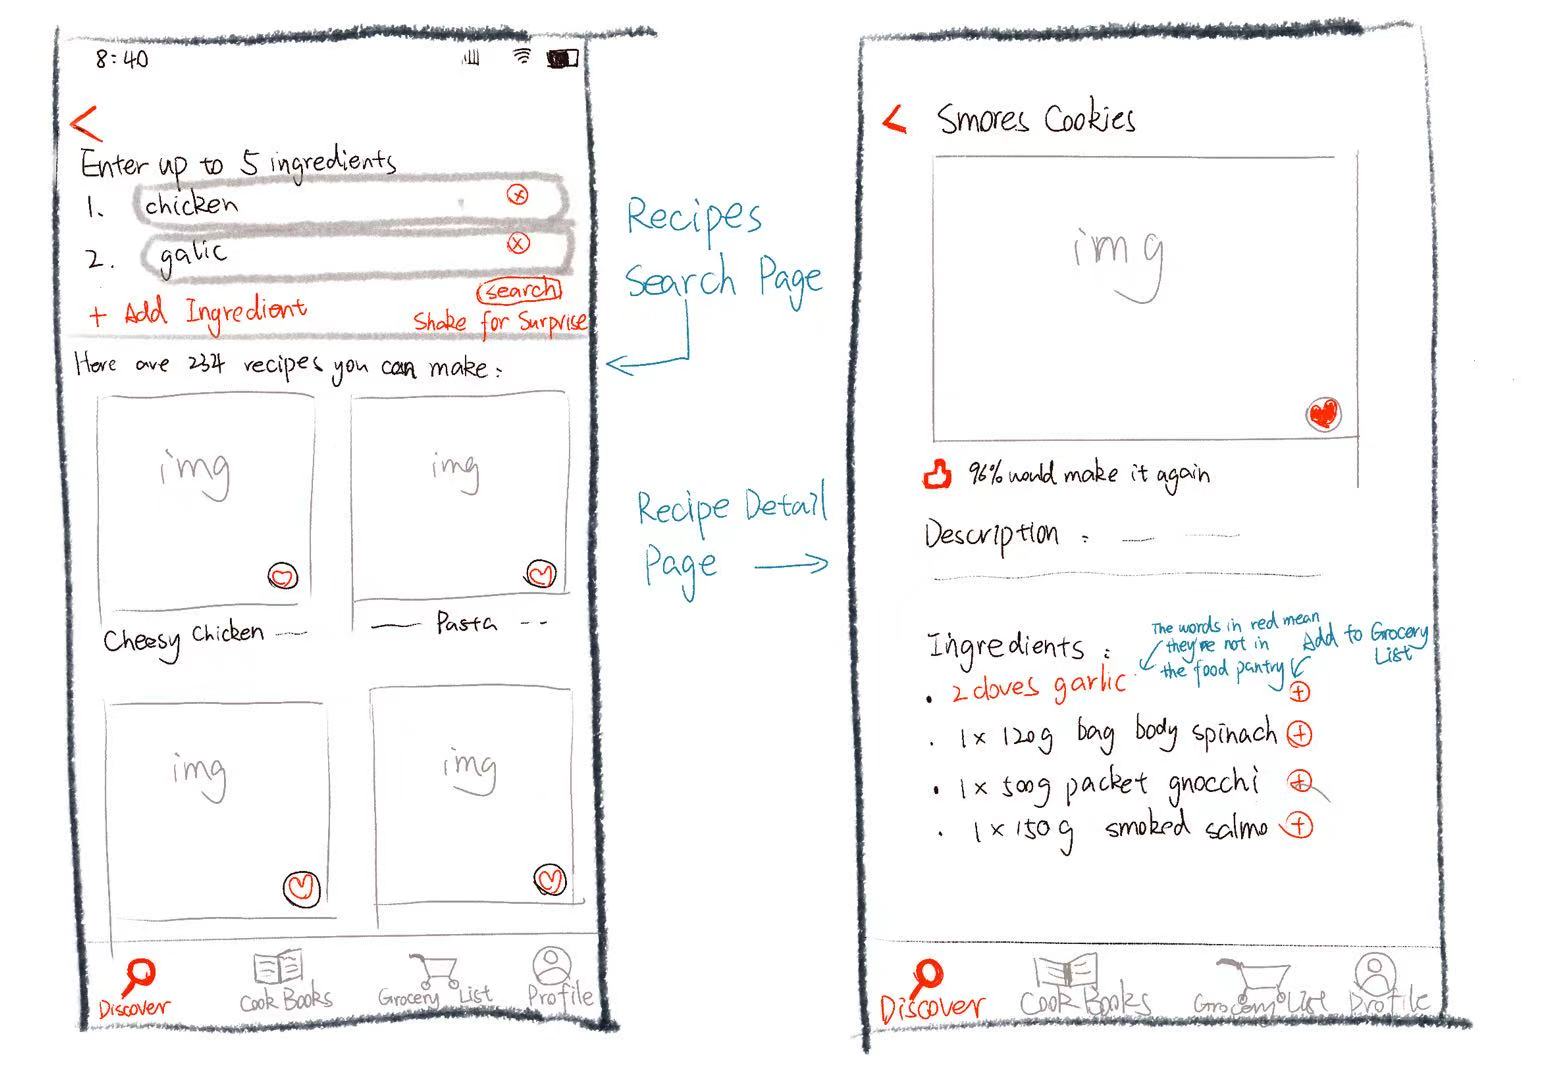 8:40
Enter up to 5 ingredients
1. chicken
2. galic
+ Add Ingredient
search
Shake for Surprise
Here are 234 recipes you can make:
img
img
Cheesy Chicken
Pasta
img
img
Discover
Cook Books
Grocery List
Profile
Recipes
Search Page
Recipe Detail
Page
Smores Cookies
img
96% would make it again
Description :
Ingredients :
The words in red mean
they're not in
the food pantry
Add to Grocery
List
2 cloves garlic
1 x 120g bag body spinach
1 x 500g packet gnocchi
1 x 150g smoked salmo
Discover
Cook Books
Grocery List
Profile